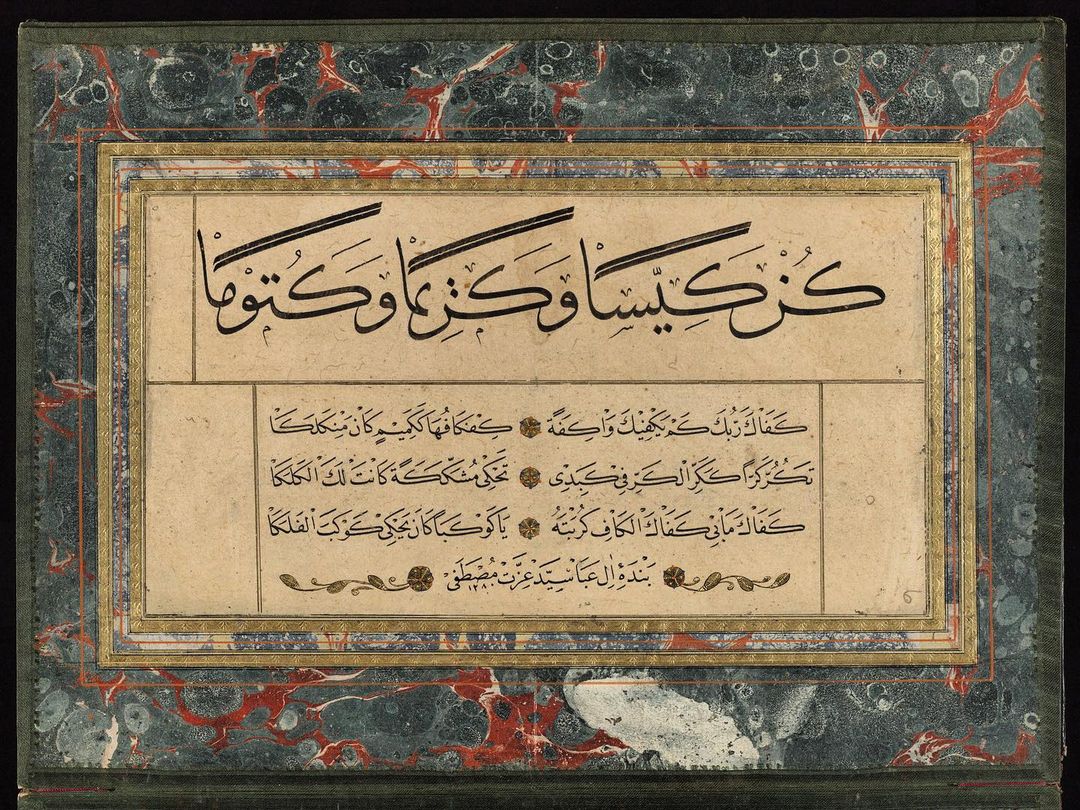 كُنْ كَيِّسًا وَكَرِيمًا وَكَتُومًا
كَفَاكَ رَبُّكَ كَمْ يَكْفِيكَ وَاكِفَةً كِفْكَافُهَا كَكَمِيمٍ كَانَ مِنْكَلَكَا
تَكُرُّ كَرًّا كَكَرِّ الْكَرِّ فِي كَبِدِي تَحْكِي مُشَكْشَكَةً كَانَتْ لَكَ الْكَلَكَا
كَفَاكَ مَابِي كَفَاكَ الْكَافِ كُرْبَتَهُ يَا كَوْكَبًا كَانَ يَحْكِي كَوْكَبَ الْفَلَكَا
بَنْدَهٔ اٰلِ عَبَا سَيِّدْ عِزَّتْ مُصْطَفَى